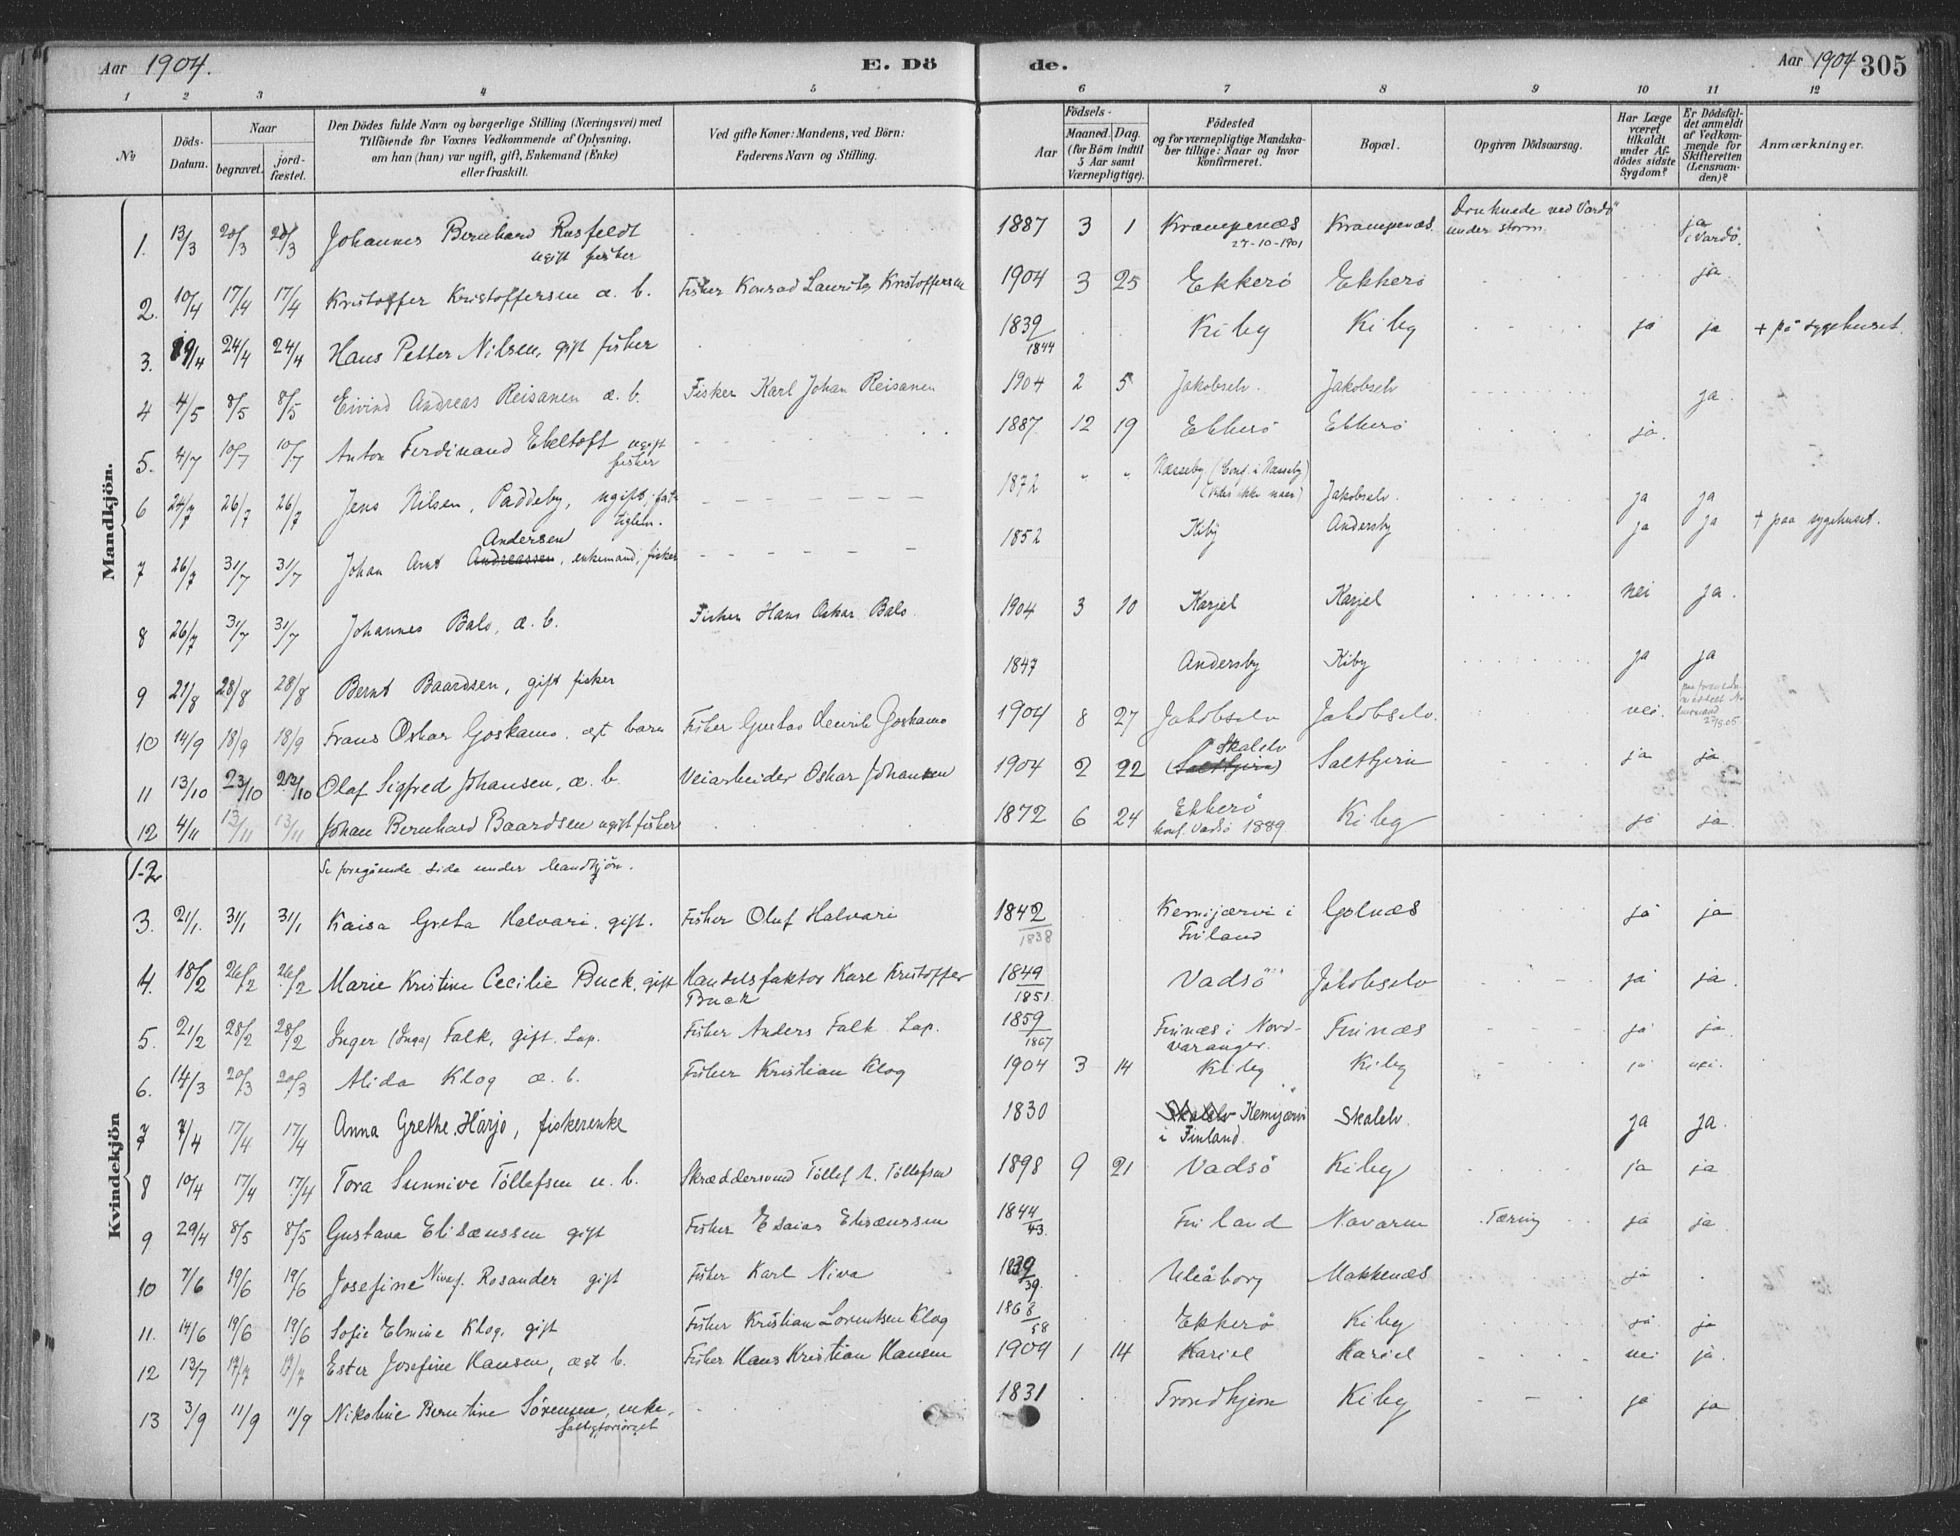 Aar 1904. E. Dö de. Aar 1904 305
1 2 3 4 5 6 7 8 9 10 11 12
No
Döds-Datum.
Naar
begravet.
jord-fæstet.
Den Dödes fulde Navn og borgerlige Stilling (Næringsvei) med
Tilföiende for Voxnes Vedkommende af Oplysning,
om han (hun) var ugift, gift, Enkemand (Enke)
eller fraskilt.
Ved gifte Koner: Mandens, ved Börn:
Faderens Navn og Stilling.
Födsels-
Aar
Maaned. Dag.
(for Börn indtil
5 Aar samt
Værnepligtige).
Födested
og for værnepligtige Mandska-
ber tillige: Naar og hvor
konfirmeret.
Bopæl.
Opgiven Dödsaarsag.
Har Læge
været
tilkaldt
under Af-
dödes sidste
Sygdom?
Er Dödsfal-
det anmeldt
af Vedkom-
mende for
Skifteretten
(Lensman-
den)?
Anmærkninger.
Mandkjön.
1. 13/3 20/3 20/3 Johannes Bernhard Rusfeldt ugift fisker 1887 3 1 Krampenæs 27-10-1901 Krampenæs. Druknede ved Vardö under storm ja i Vardö.
2. 10/4 17/4 17/4 Kristoffer Kristoffersen æ. b. Fisker Konrad Lauritz Kristoffersen 1904 3 25 Ekkerö Ekkerö ja.
3. 19/4 24/4 24/4 Hans Petter Nilsen, gift fisker 1839/1844 Kiby Kiby ja ja + på sygehuset.
4 4/5 8/5 8/5 Eivind Andreas Reisanen æ. b. Fisker Karl Johan Reisanen 1904 2 5 Jakobselv. Jakobselv ja.
5. 4/7 10/7 10/7 Anton Ferdinand Ebeltoft ugift fisker 1887 12 19 Ekkerö Ekkerö ja.
6 24/7 26/7 26/7 Jens Nilsen, Paddeby, ugift, fattiglem. 1872 " " Næsseby (Conf. i Næsseby) (Vides ikke naar) Jakobselv. ja ja
7 26/7 31/7 31/7 Johan Arnt Andreassen Andersen, enkemand, fisker 1852 Kiby Andersby ja ja + paa sygehuset.
8 26/7 31/7 31/7 Johannes Balo, æ. b. Fisker Hans Oskar Balo. 1904 3 10 Karjel Karjel nei ja.
9 21/8 28/8 28/8 Bernt Baardsen, gift fisker 1847 Andersby Kiby ja ja
10 14/9 18/9 18/9 Frans Oskar Goskamo, ægt barn Fisker Gustav Henrik Goskamo 1904 8 27 Jakobselv Jakobselv. nei.
11 13/10 23/10 23/10 Olaf Sigfred Johansen, æ. b. Veiarbeider Oskar Johansen 1904 2 22 (Saltfjern) Skalelv Saltfjern ja ja
12 4/11 13/11 13/11 Johan Bernhard Baardsen ugift fisker 1872 6 24 Ekkerö konf. Vadsö 1889 Kiby ja ja.
Kvindekjön
1-2 Se foregående side under Mandkjön.
3. 21/1. 31/1 31/1 Kaisa Greta Halvari. gift. Fisker Oluf Halvari 1842/1838 Kemijærvi i Finland Golnæs ja ja
4. 18/2 26/2 26/2 Marie Kristine Cecilie Buck, gift Handelsfaktor Karl Kristoffer Buck 1849/1851. Vadsö Jakobselv ja ja.
5. 21/2 28/2 28/2 Inger (Inga) Falk, gift. Lap. Fisker Anders Falk Lap. 1859/1867 Finnæs i Nord-varanger. Finnæs ja ja.
6. 14/3 20/3 20/3 Alida Klog æ. b. Fisker Kristian Klog 1904 3 14 Kiby Kiby ja nei.
7 7/4 17/4 17/4 Anna Grethe Härjo, fiskerenke 1830 Skalelv Kemijærvi i Finland. Skalelv. ja ja.
8 10/4 17/4 17/4 Tora Sunnive Töllefsen u. b. Skræddersvend Töllef A. Töllefsen 1898 9 21 Vadsö Kiby ja ja
9 29/4 8/5 8/5 Gustava Elisæussen gift Fisker Esaias Elisæussen 1844/43. Finland Navaren Tæring ja ja
10 7/6 19/6 19/6 Josefine Niva f. Rosander gift Fisker Karl Niva 1839/39. Uleåborg Makkenæs ja
11. 14/6 19/6 19/6 Sofie Elmine Klog, gift Fisker Kristian Lorentsen Klog 1868/58 Ekkerö Kiby ja ja
12 13/7 17/7 17/7 Ester Josefine Hansen, ægt b. Fisker Hans Kristian Hansen 1904 1 14 Kariel Kariel nei ja.
13 3/9 11/9 11/9 Nikoline Berntine Sörensen, enke, fattigforsörget 1831 Trondhjem Kiby ja ja